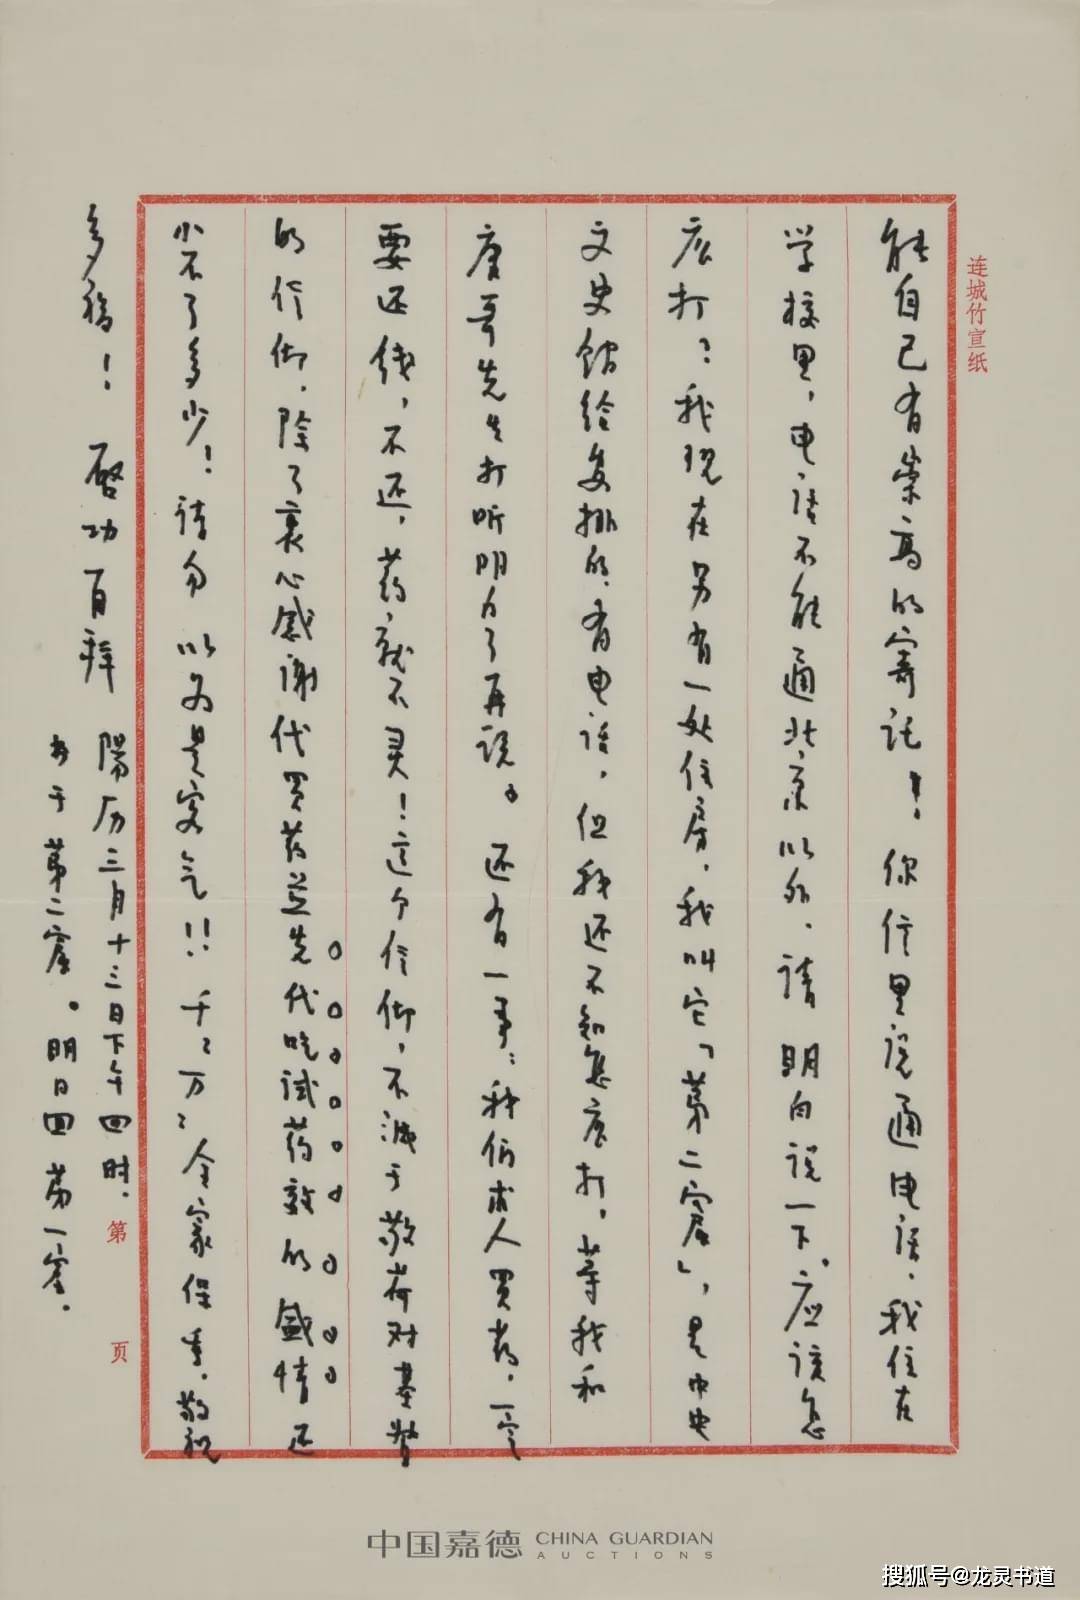 连城竹宣纸
能自己有崇高的寄託！你信里说通电话，我住在
学校里，电话不能通北京以外，请明白说一下。应该怎
底打？我现在另有一处住房，我叫它「第二窟」，是中央
文史馆给安排的，有电话，但我还不知怎底打，等我和
唐哥先生打听明白了再说。还有一事：我们求人买药，一定
要还钱，不还，药就不灵！这个信仰，不减于敬荷对基督
的信仰，除了衷心感谢代买药并先代吃试药效的盛情还
少不了多少！请勿以为是客气!!千〻万〻全家保重，敬祝
多福！启功百拜
陽历三月十三日下午四时。
书于第二窟。明日回第一窟。
第 页
中国嘉德 CHINA GUARDIAN
AUCTIONS
搜狐号@龙灵书道